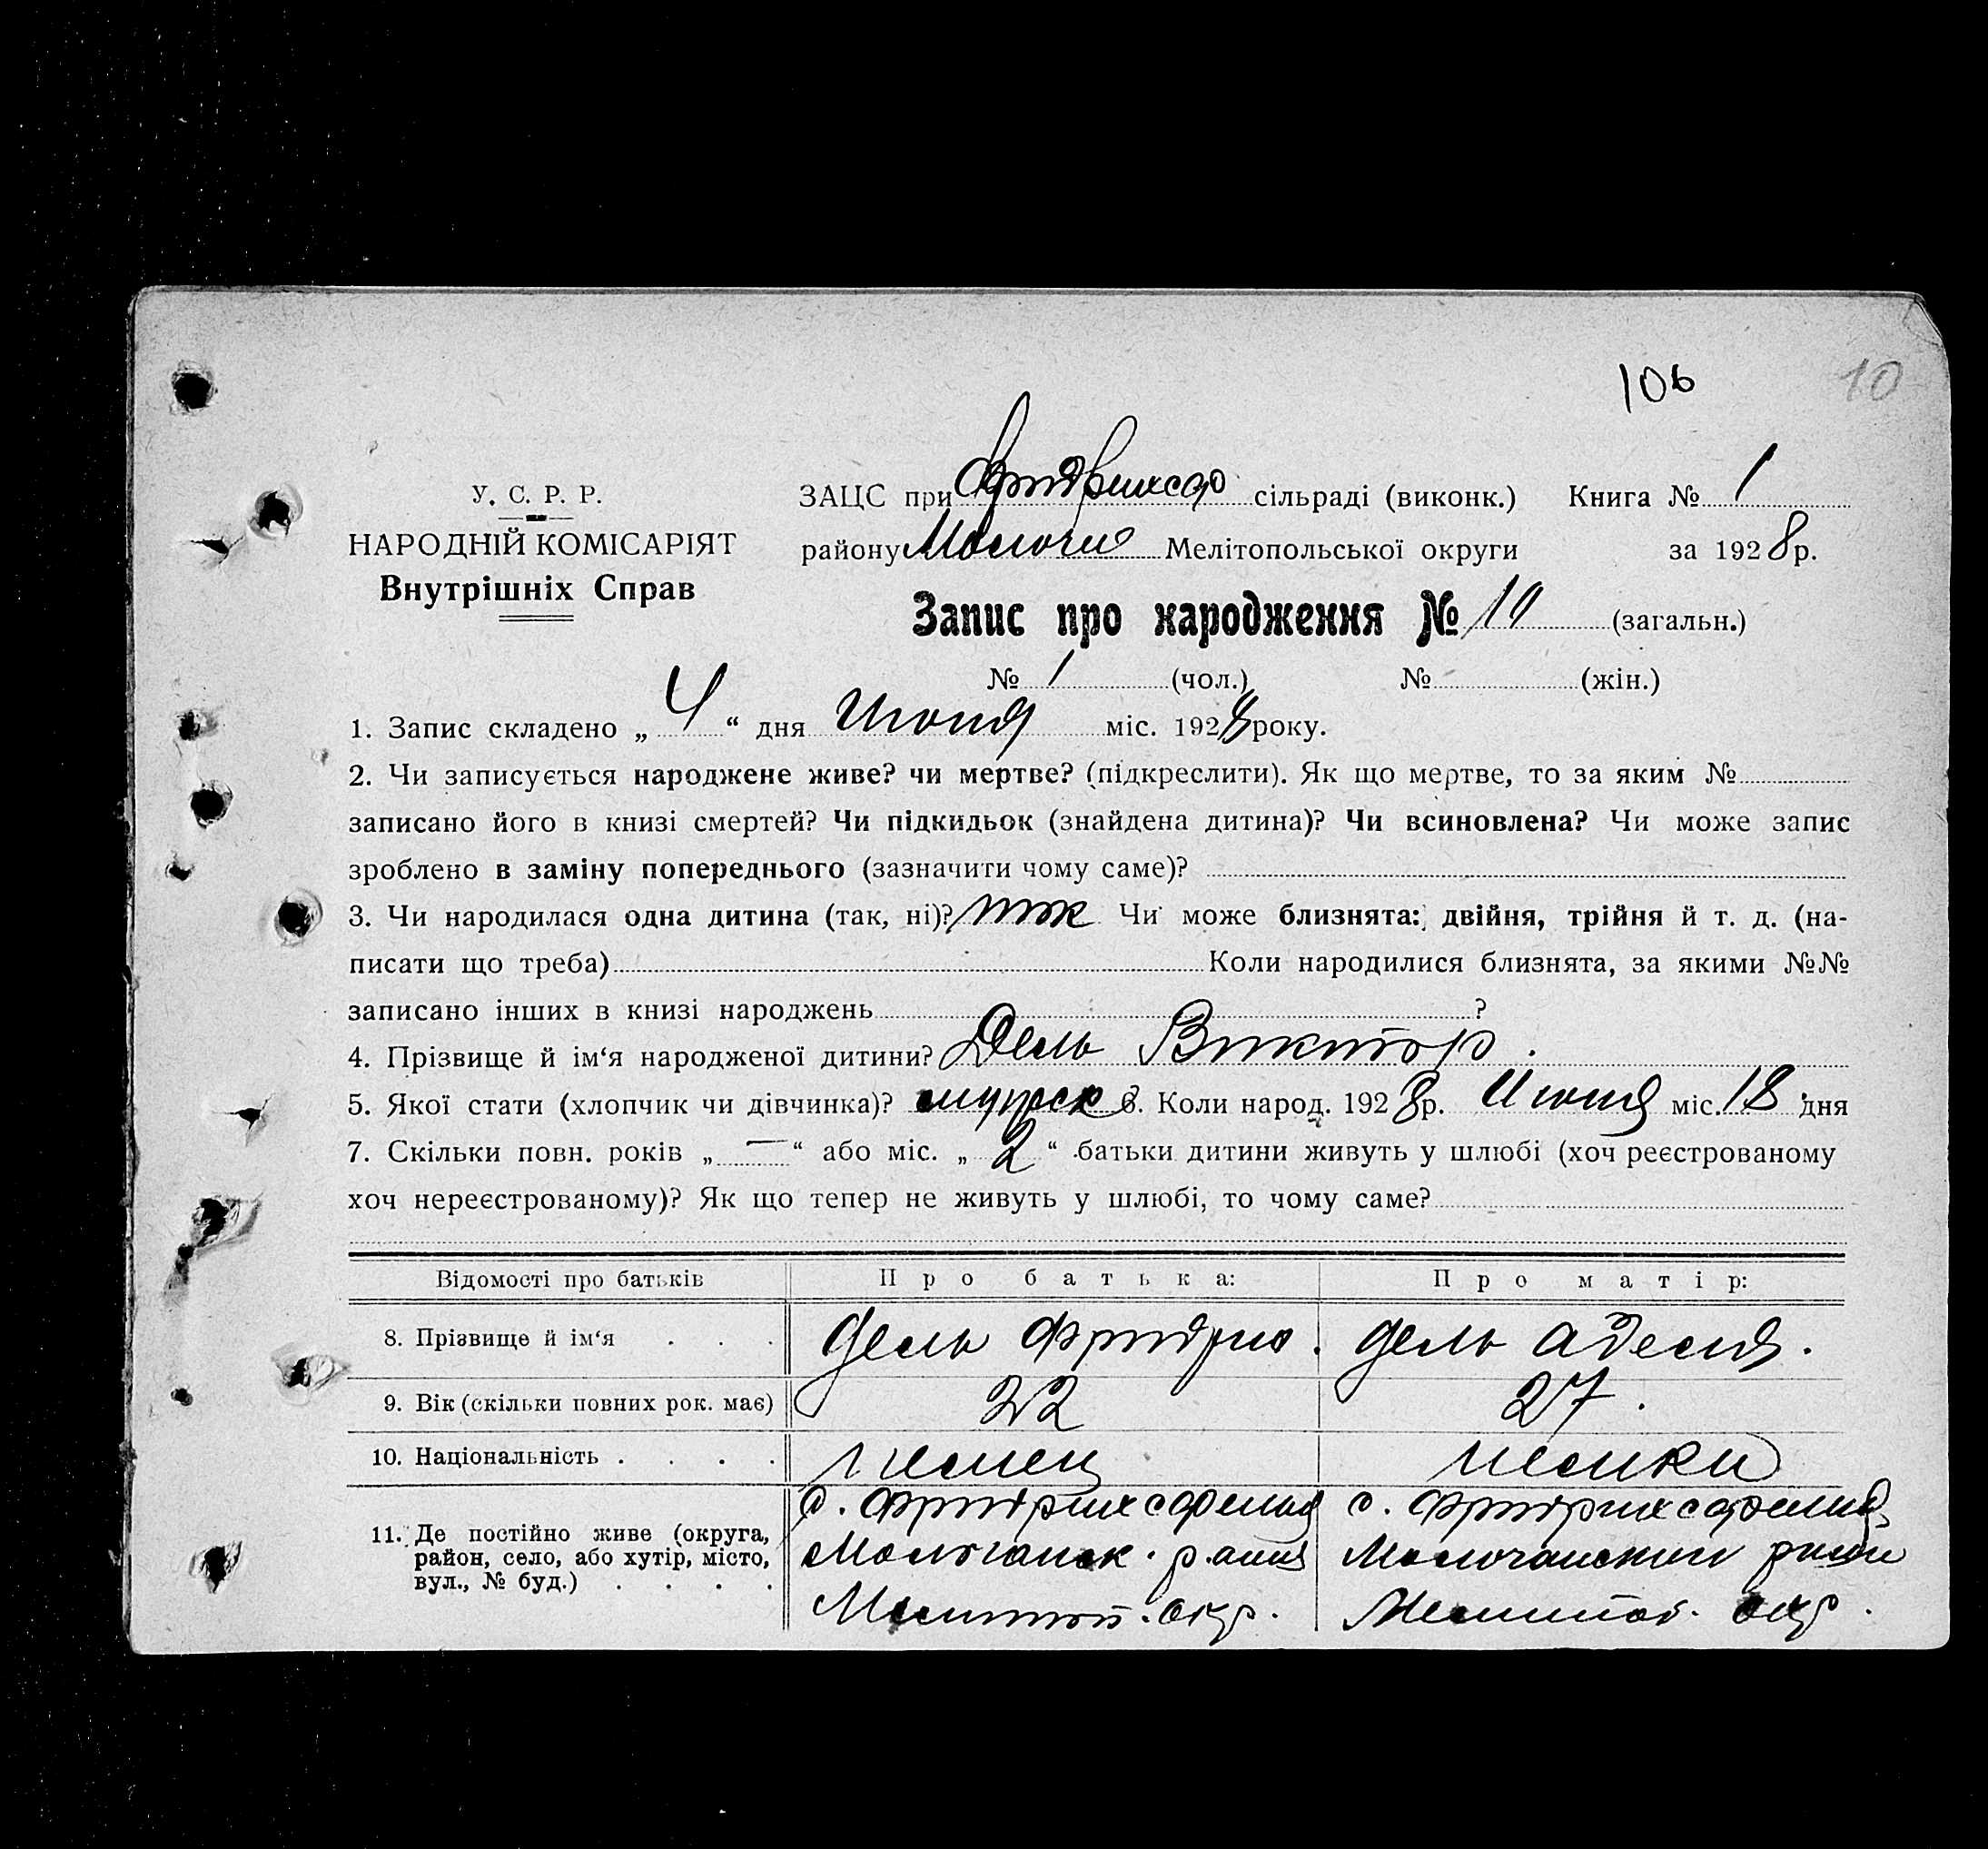 106
10
У. С. Р. Р.
НАРОДНІЙ КОМІСАРІЯТ
Внутрішніх Справ
ЗАЦС при сільраді (виконк.) Книга № 1
району Молоч Мелітопольської округи за 1928 р.
Запис про народження № (загальн.)
№ 1 (чол.) № (жін.)
1. Запис складено „ 4 “ дня Июня міс. 1928 року.
2. Чи записується народжене живе? чи мертве? (підкреслити). Як що мертве, то за яким №
записано його в книзі смертей? Чи підкидьок (знайдена дитина)? Чи всиновлена? Чи може запис
зроблено в заміну попереднього (зазначити чому саме)?
3. Чи народилася одна дитина (так, ні)? так Чи може близнята: двійня, трійня й т. д. (на-
писати що треба) Коли народилися близнята, за якими №№
записано інших в книзі народжень ?
4. Прізвище й ім‘я народженої дитини? Дель Виктор.
5. Якої стати (хлопчик чи дівчинка)? мужск 6. Коли народ. 1928 р. Июня міс. 18 дня
7. Скільки повн. років „ — “ або міс. „ 2 “ батьки дитини живуть у шлюбі (хоч реєстрованому
хоч нереєстрованому)? Як що тепер не живуть у шлюбі, то чому саме?
Відомості про батьків Про батька: Про матір:
8. Прізвище й ім‘я . . . Дель Фридрих. Дель Аделия.
9. Вік (скільки повних рок. має) 22 27.
10. Національність . . . . немец немки
11. Де постійно живе (округа, с. Фридрихсфельд с. Фридрихсфельд
район, село, або хутір, місто, Молочанск. р. Молочанский
вул., № буд.) . . . . Мелитоп. окр. Мелитоп. окр.